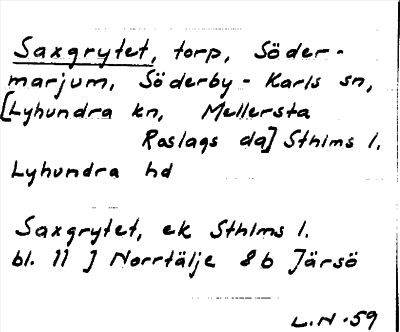 Saxgrytet, torp, Söder-
marjum, Söderby-Karls sn,
[Lyhundra kn, Mellersta
Roslags da] Sthlms l.
Lyhundra hd
Saxgrytet, ek Sthlms l.
bl. 11 J Norrtälje 8b Järsö
L.N.59